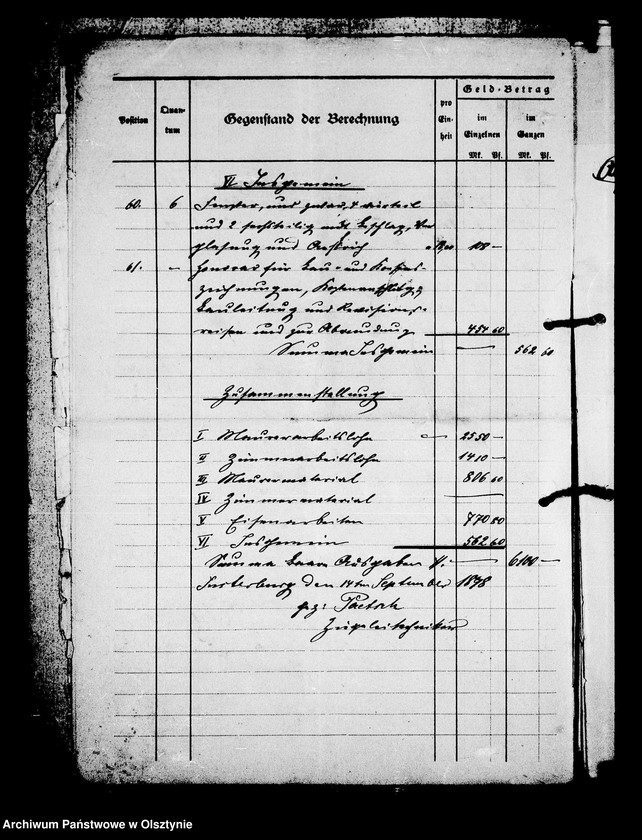 Position
Quan-
tum
Gegenstand der Berechnung
pro
Ein-
heit
Geld-Betrag
im
Einzelnen
Mk. Pf.
im
Ganzen
Mk. Pf.
VI Insgemein
60. 6 Fenster, und zwar 4 vierteil
und 2 sechsteilig mit Beschlag, Ver
glasung und Anstrich a 18,00 108 —
61. — Honorar für Bau- und
zeichnungen, Kostenanschlag,
Bauleitung und Revisions-
reisen und zur Abrundung 454 60
Summa Insgemein — 562 60
Zusammenstellung
I Maurerarbeitslohn 2550 —
II Zimmerarbeitslohn 1410 —
III Maurermaterial 806 60
IV Zimmermaterial —
V Eisenarbeiten 770 80
VI Insgemein 562 60
Summa baare Ausgaben — 6100 —
Insterburg den 14ten September 1878
gez: Paetsch
Archiwum Państwowe w Olsztynie